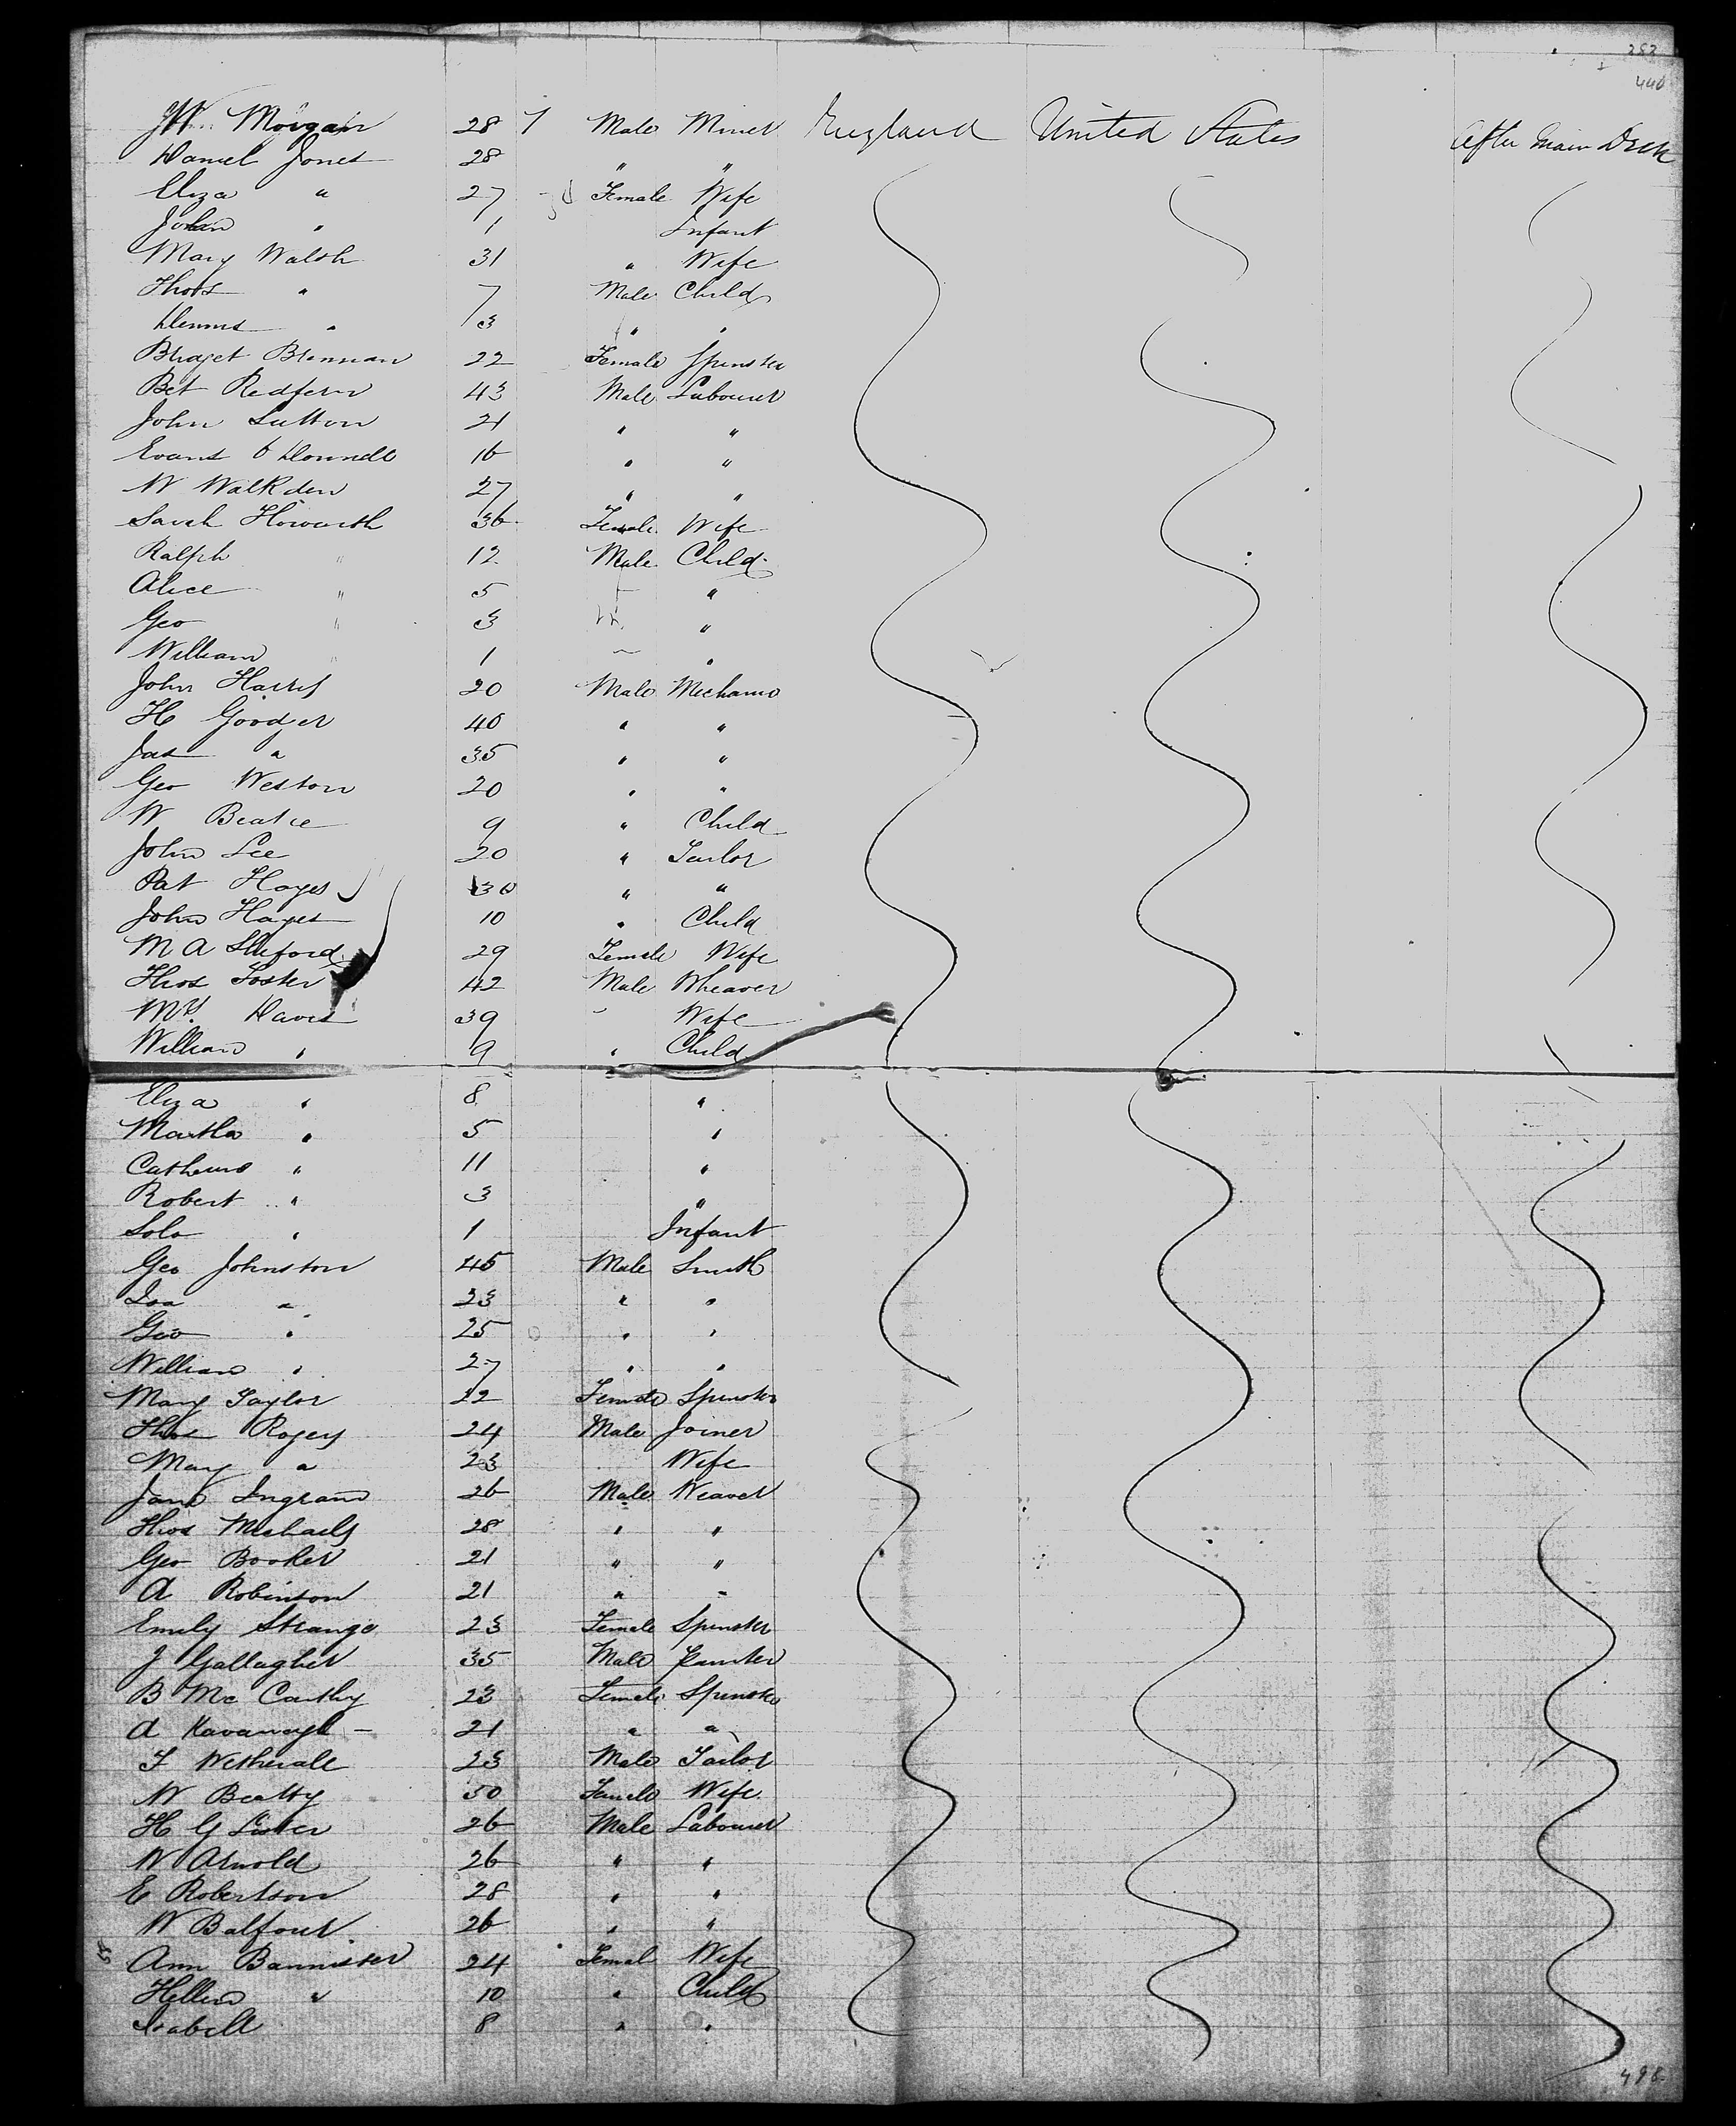 282
440
JW Morgan 28 1 Male Miner England United States After Main Deck
Daniel Jones 28 " "
Eliza " 27 Female Wife
John " 1 Infant
Mary Walsh 31 " Wife
Thos " 7 Male Child
Dennis " 3 " "
Bridget Brennan 22 Female Spinster
Bet Redfern 43 Male Labourer
John Sutton 21 " "
Evans O Donnell 16 " "
W Walkden 27 " "
Sarah Howarth 36 Female Wife
Ralph " 12 Male Child
Alice " 5 "
Geo " 3 "
William " 1 "
John Harris 20 Male Mechanic
H Goodger 40 " "
Jas " 35 " "
Geo Weston 20 " "
W Beatie 9 " Child
John Lee 20 " Tailor
Pat Hayes 30 " "
John Hayes 10 " Child
M A 29 Female Wife
Thos Foster 42 Male Wheaver
Mrs Davis 39 Wife
William " 9 " Child
Eliza " 8 "
Martha " 5 "
Catherine " 11 "
Robert " 3 "
Solo " 1 Infant
Geo Johnston 45 Male Smith
Isa " 23 " "
Geo " 25 " "
William " 27 " "
Mary Taylor 22 Female Spinster
Thos Rogers 24 Male Joiner
Mary " 23 Wife
Jane Ingram 26 Male Weaver
Thos Michaels 28 " "
Geo Booker 21 " "
A Robinson 21 " "
Emily Strange 23 Female Spinster
J Gallagher 35 Male Painter
B Mc Carthy 23 Female Spinster
A Kavanagh 21 " "
F Wetherall 23 Male Tailor
W Beatty 50 Female Wife
H G Lister 26 Male Labourer
W Arnold 26 " "
E Robertson 28 " "
W Balfour 26 " "
Ann Bannister 24 Femal Wife
Hellen " 10 " Child
Isabell 8 " "